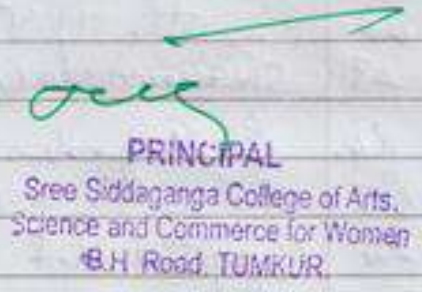 PRINCIPAL
Sree Siddaganga College of Arts,
Science and Commerce for Women
B.H. Road, TUMKUR.